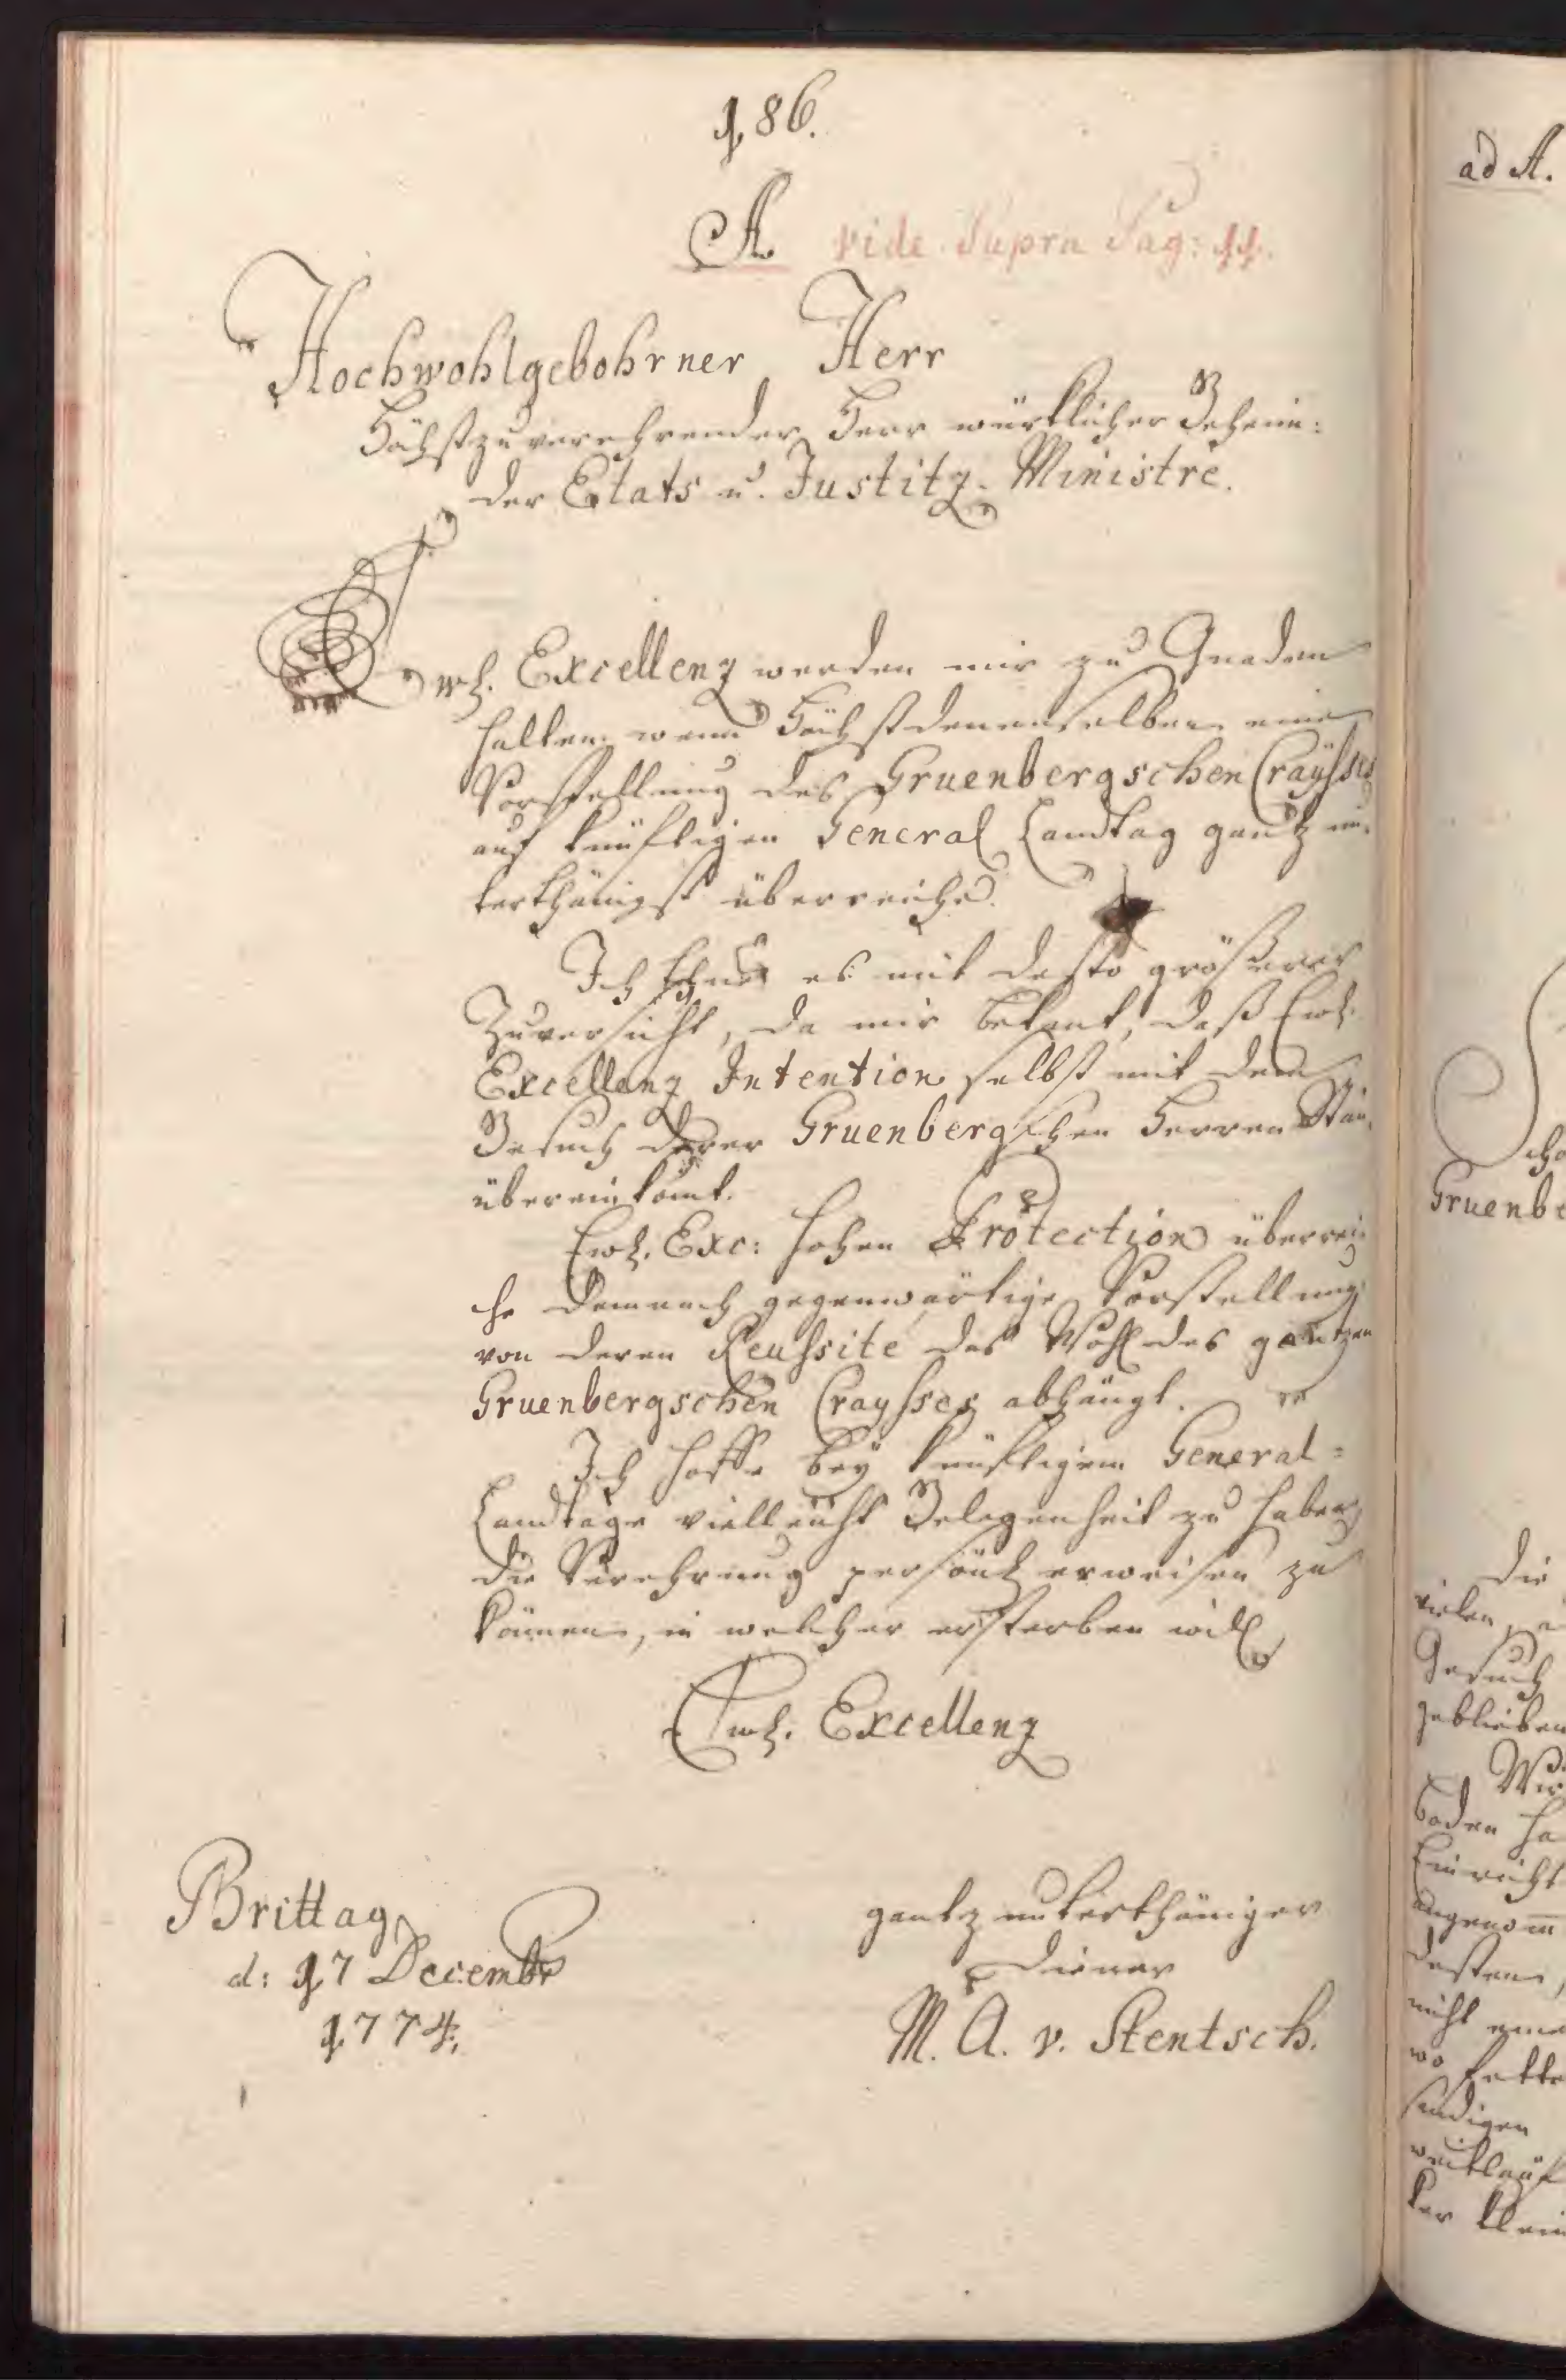 186.
A. vide Supra Pag: 11.
Hochwohlgebohrner Herr
Höchstzuverehrender Herr würklicher Geheim:
der Etats u. Justitz-Ministre.
Ewl. Excellenz werden mir zu Gnaden
halten, wenn Höchstdenenselben eine
Vorstellung des Gruenbergschen Crayßes
auf künftigen General Landtag gantz un-
terthänigst überreiche.
Ich thue es mit desto größerer
Zuversicht, da mir bekant, daß Ewl.
Excellenz Intention selbst mit dem
Gesuch derer Gruenbergschen Herren Stän-
übereinkömt.
Ewl. Exc: hohen Protection überrei-
che demnach gegenwärtige Vorstellung
von deren Reussite das Wohl des gantzen
Gruenbergschen Craysses abhängt.
Ich hoffe bey künftigem General=
Landtage vielleicht Gelegenheit zu haben,
die Verehrung persönl. erweisen zu
können, in welcher ersterben will
Ewl. Excellenz
Brittag
d: 17 Decembr
1774.
gantz unterthäniger
Diener
M. A. v. Stentsch.
ad A.
Gruenbe
Die
vielen
Gesuch
geblieben
Wir
boden ha
Einricht
angenom̅
desten,
nicht eine
wo fette
sandigen
weitläuf
ter klein